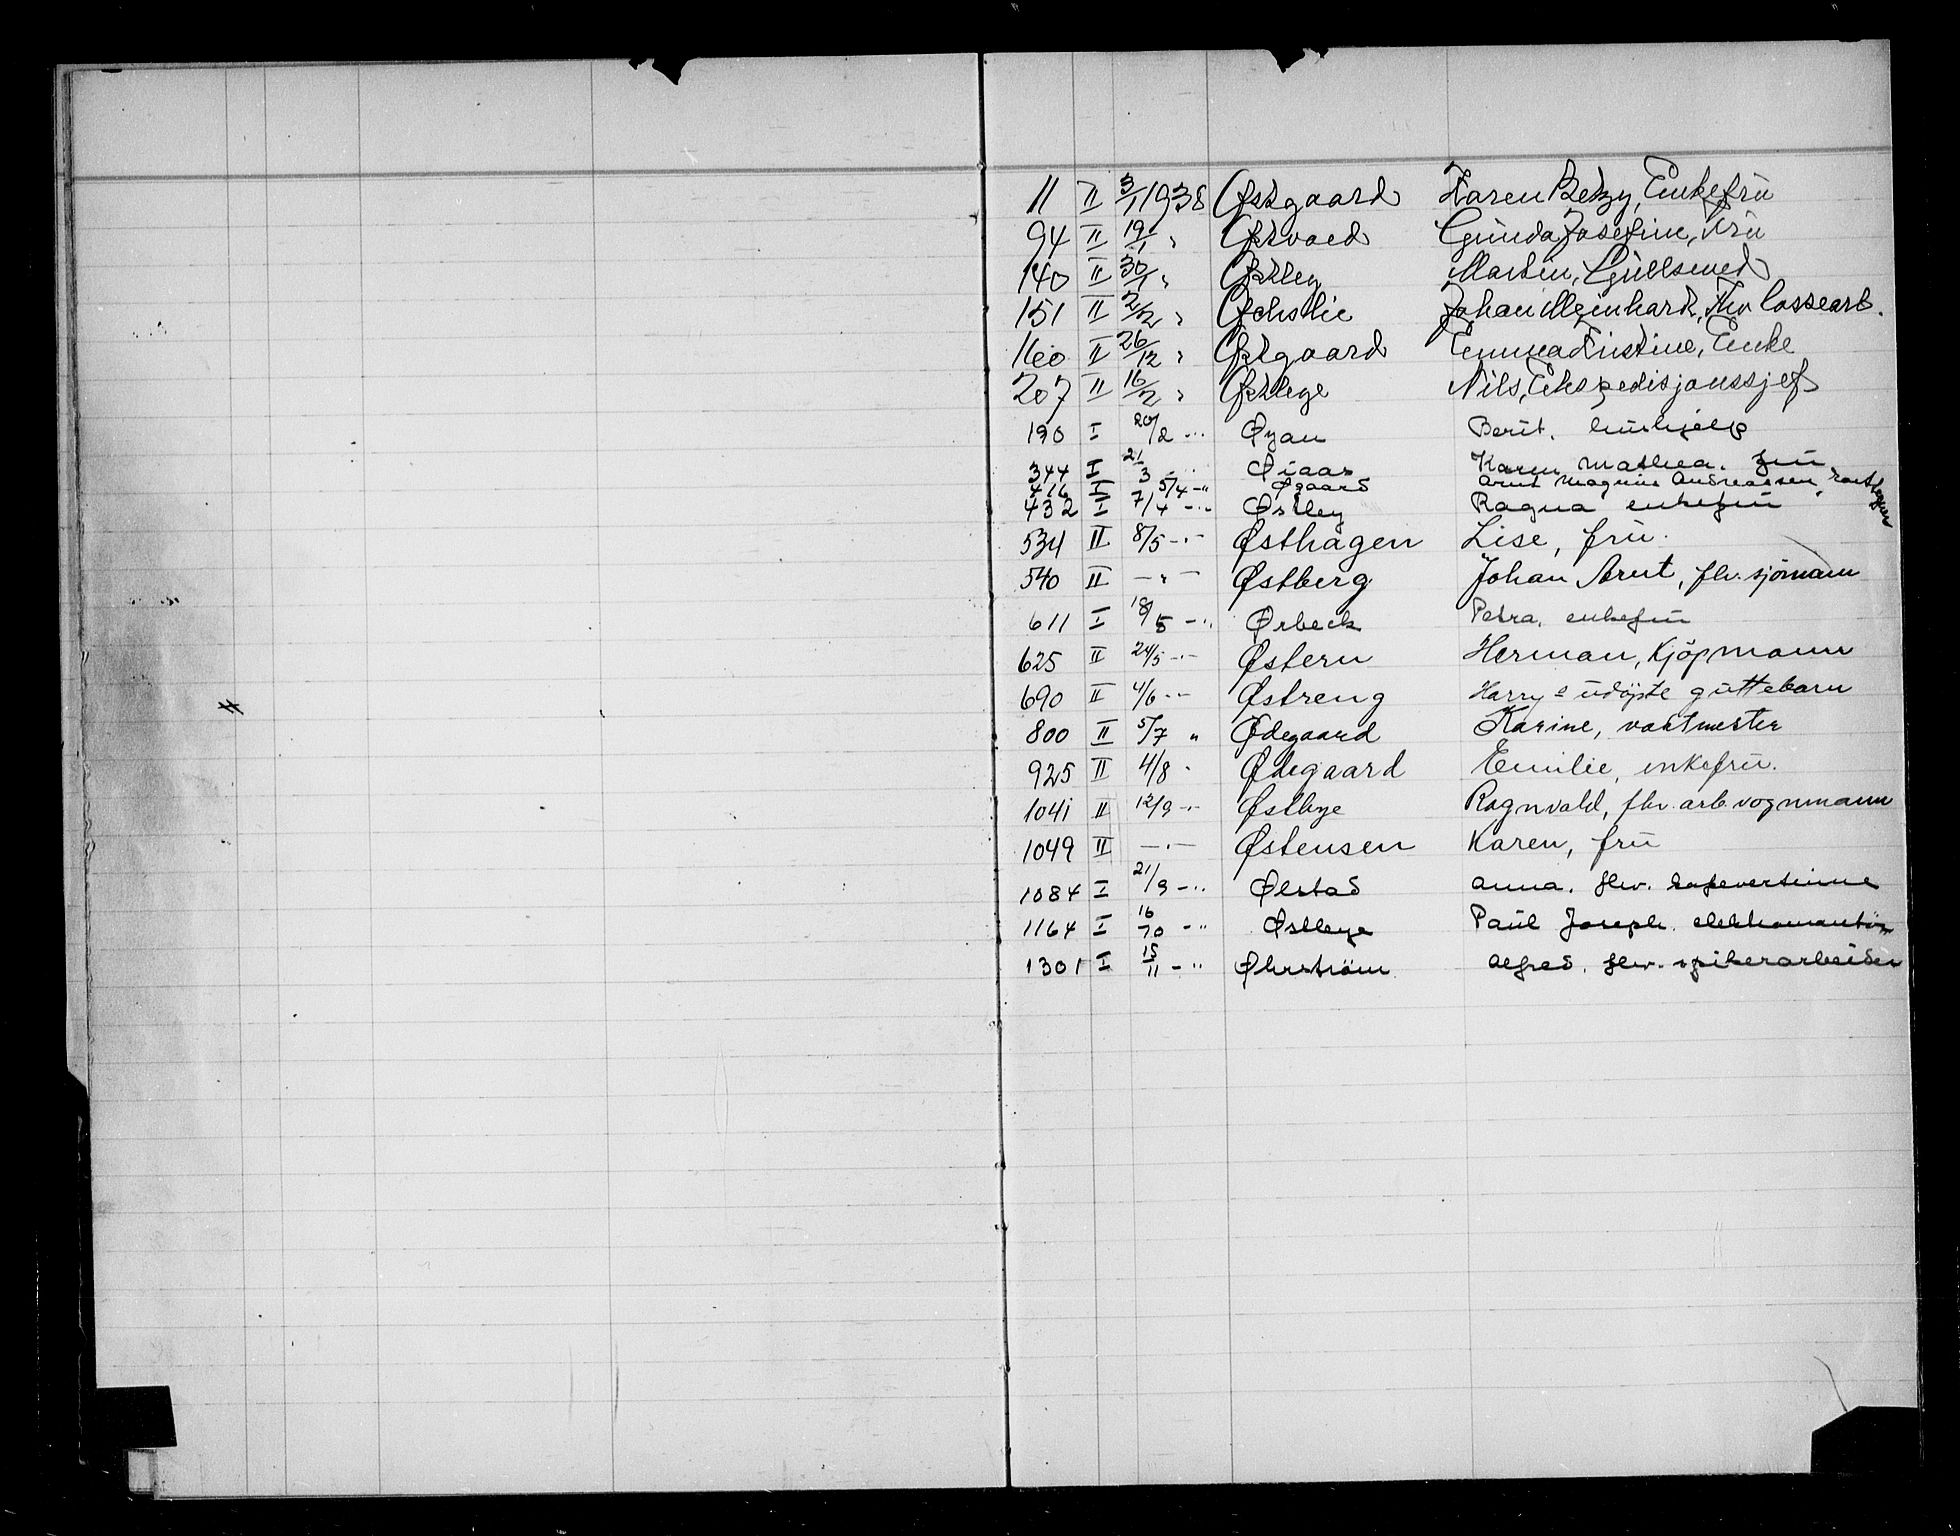 11 II 3/1 1938 Østgaard Karen Betzy, Enkefrü
94 II 19/1 " Østvoed Günda Josefine, Frü
140 II 30/1 " Østley Martin, Güllsmed
151 II 2/2 " Johan Meinhard, fhv losseart.
160 II 26/12 " Østgaard Emma Kristine, Enke
207 II 16/2 " Østlege Nils, Ekspedisjonssjef
190 I 20/2 -"- Øyan Berit. hüshjelp
344 I 21/3 -"- Øiaas Karen Mathea. frü
416 I 5/4 -"- Øgaard Arnt Magnüs Andreassen,
432 I 7/4 -"- Østley Ragna enkefrü
534 II 8/5 -"- Østhagen Lise, frü.
540 II -"- Østberg Johan Arnt, fhv. sjömann
611 I 18/5 -"- Ørbeck Petra. enkefrü
625 II 24/5 -"- Østern Herman, Kjöpmann
690 II 4/6 -"- Østreng Harry s üdöpte güttebarn
800 II 5/7 " Ødegaard Karine, vaktmester
925 II 4/8 " Ødegaard Emilie, enkefrü.
1041 II 12/9 -"- Østbye Ragnvald, fhv. arb. vognmann
1049 II -"- Østensen Karen, frü
1084 I 21/9 -"- Ølstad Anna. fhv. kafevertinne
1164 I 16/10 -"- Østbye Paül Joseph. elektromontör
1301 I 15/11 -"- Øhrström Alfred. fhv. spikerarbeider